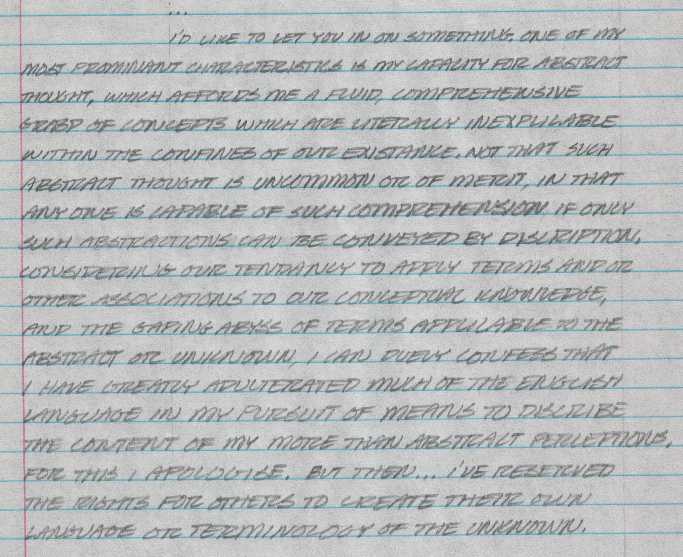 ...
I'D LIKE TO LET YOU IN ON SOMETHING. ONE OF MY
MOST PROMINANT CHARACTERISTICS IS MY CAPACITY FOR ABSTRACT
THOUGHT, WHICH AFFORDS ME A FLUID, COMPREHENSIVE
GRASP OF CONCEPTS WHICH ARE LITERALLY INEXPLICABLE
WITHIN THE CONFINES OF OUR EXISTANCE. NOT THAT SUCH
ABSTRACT THOUGHT IS UNCOMMON OR OF MERIT, IN THAT
ANY ONE IS CAPABLE OF SUCH COMPREHENSION IF ONLY
SUCH ABSTRACTIONS CAN BE CONVEYED BY DISCRIPTION.
CONSIDERING OUR TENDANCY TO APPLY TERMS AND OR
OTHER ASSOCIATIONS TO OUR CONCEPTUAL KNOWLEDGE,
AND THE GAPING ABYSS OF TERMS APPLICABLE TO THE
ABSTRACT OR UNKNOWN, I CAN DUELY CONFESS THAT
I HAVE GREATLY ADULTERATED MUCH OF THE ENGLISH
LANGUAGE IN MY PURSUIT OF MEANS TO DISCRIBE
THE CONTENT OF MY MORE THAN ABSTRACT PERCEPTIONS,
FOR THIS I APOLOGISE. BUT THEN... I'VE RESERVED
THE RIGHTS FOR OTHERS TO CREATE THEIR OWN
LANGUAGE OR TERMINOLOGY OF THE UNKNOWN.